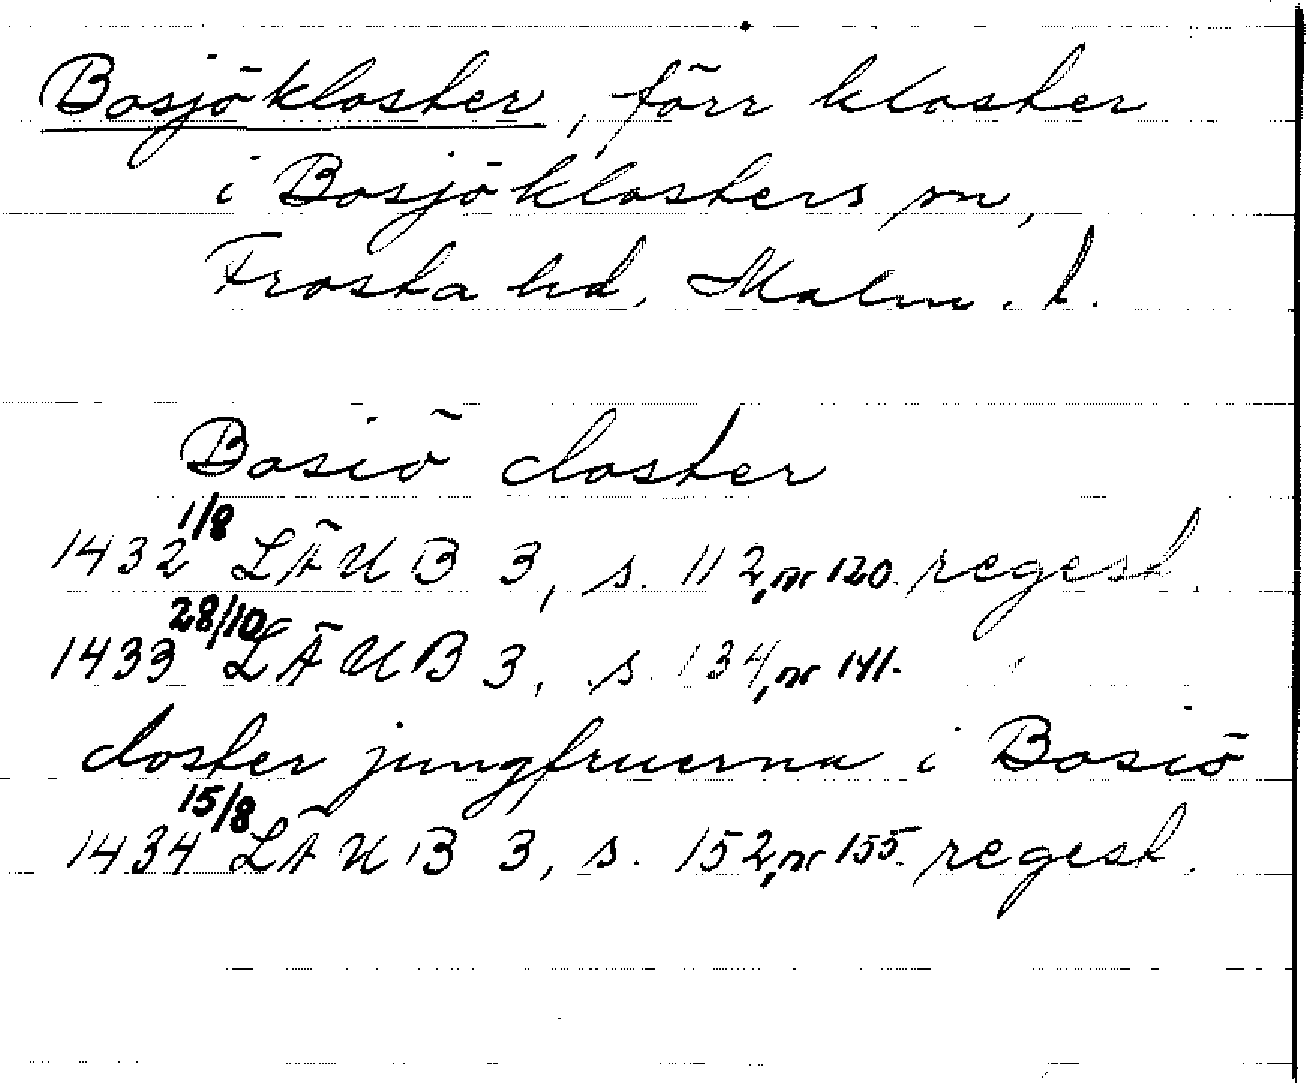 Bosjökloster, förr kloster
i Bosjöklosters sn,
Frosta hd, Malm. l.
Bosiö closter
1432 1/8 LÄUB 3, s. 112, nr 120. regest.
1433 28/10 LÄUB 3, s. 134, nr 141.
closter jungfruerna i Bosiö
1434 15/8 LÄUB 3, s. 152, nr 155. regest.